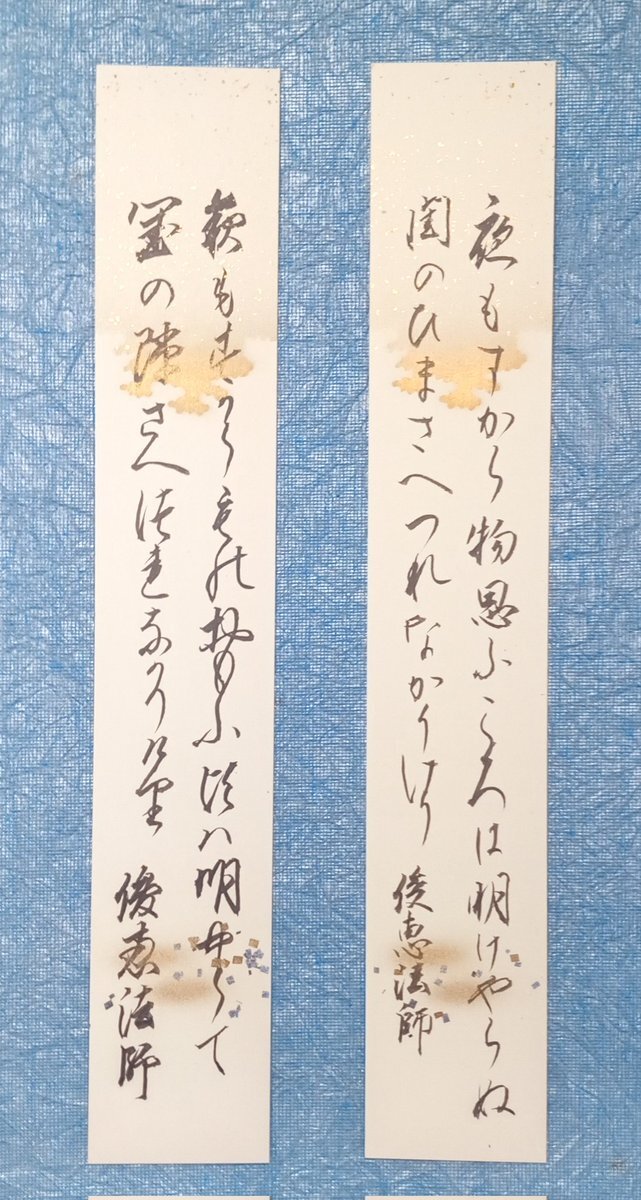 夜もすから物思ふころは明けやらぬ
閨のひまさへつれなかりけり
俊恵法師
夜もすからものおもふ頃ハ明やらて
閨の隙さへつれなかりけり
俊恵法師